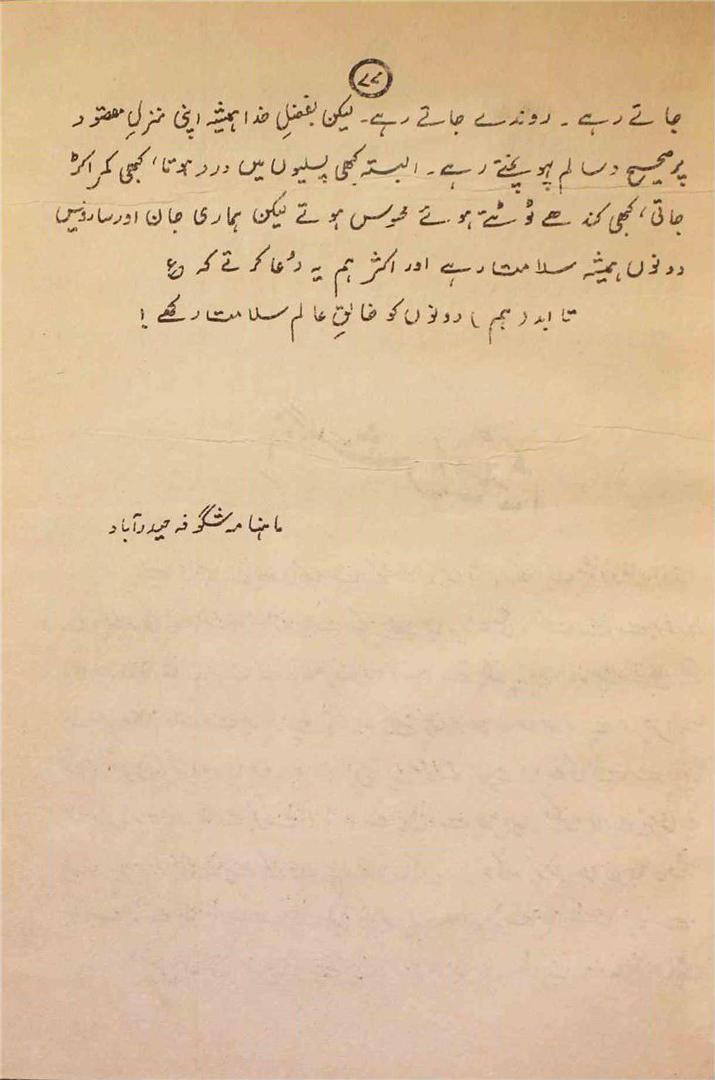 ۷۷
جاتے رہے ۔ روندے جاتے رہے۔ لیکن بفضلِ خدا ہمیشہ اپنی منزلِ مقصود
پر صحیح و سالم پہونچتے رہے۔ البتہ کبھی پسلیوں میں درد ہوتا، کبھی کمر اکڑ
جاتی، کبھی کندھے ٹوٹتے ہوئے محسوس ہوتے لیکن ہماری جان اور ساروفیس
دونوں ہمیشہ سلامت رہے اور اکثر ہم یہ دُعا کرتے کہ ؏
تا ابد (ہم) دونوں کو خالقِ عالم سلامت رکھے !
ماہنامہ شگوفہ حیدرآباد